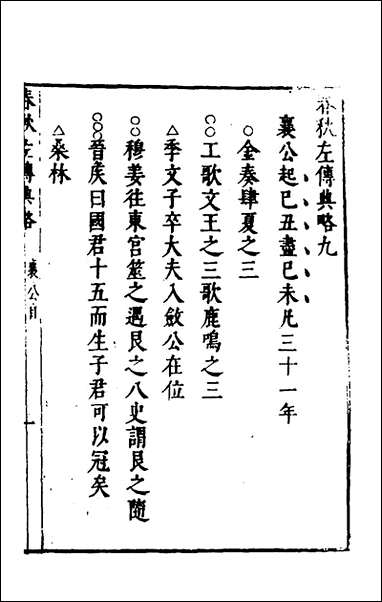 春秋左傳典略九
襄公起己丑盡己未凡三十一年
○金奏肆夏之三
○○工歌文王之三歌鹿鳴之三
△季文子卒大夫入斂公在位
○○穆姜往東宮筮之遇艮之八史謂艮之隨
○○晉矦曰國君十五而生子君可以冠矣
△桑林
春秋左傳典略 襄公目 一